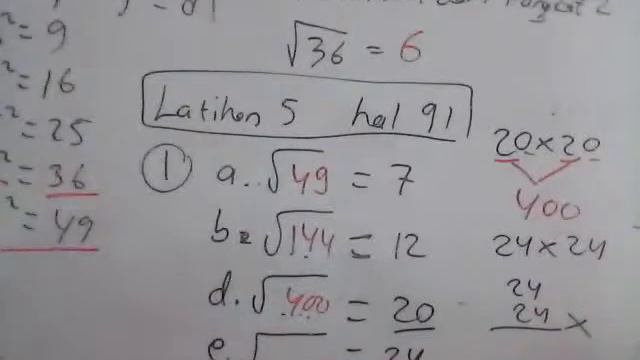 ² = 9
² = 16
² = 25
² = 36
² = 49
√36 = 6
Latihan 5 hal 91
① a. √49 = 7
b. √144 = 12
d. √400 = 20
e. √ = 24
20 × 20
400
24 × 24
24
24 ×